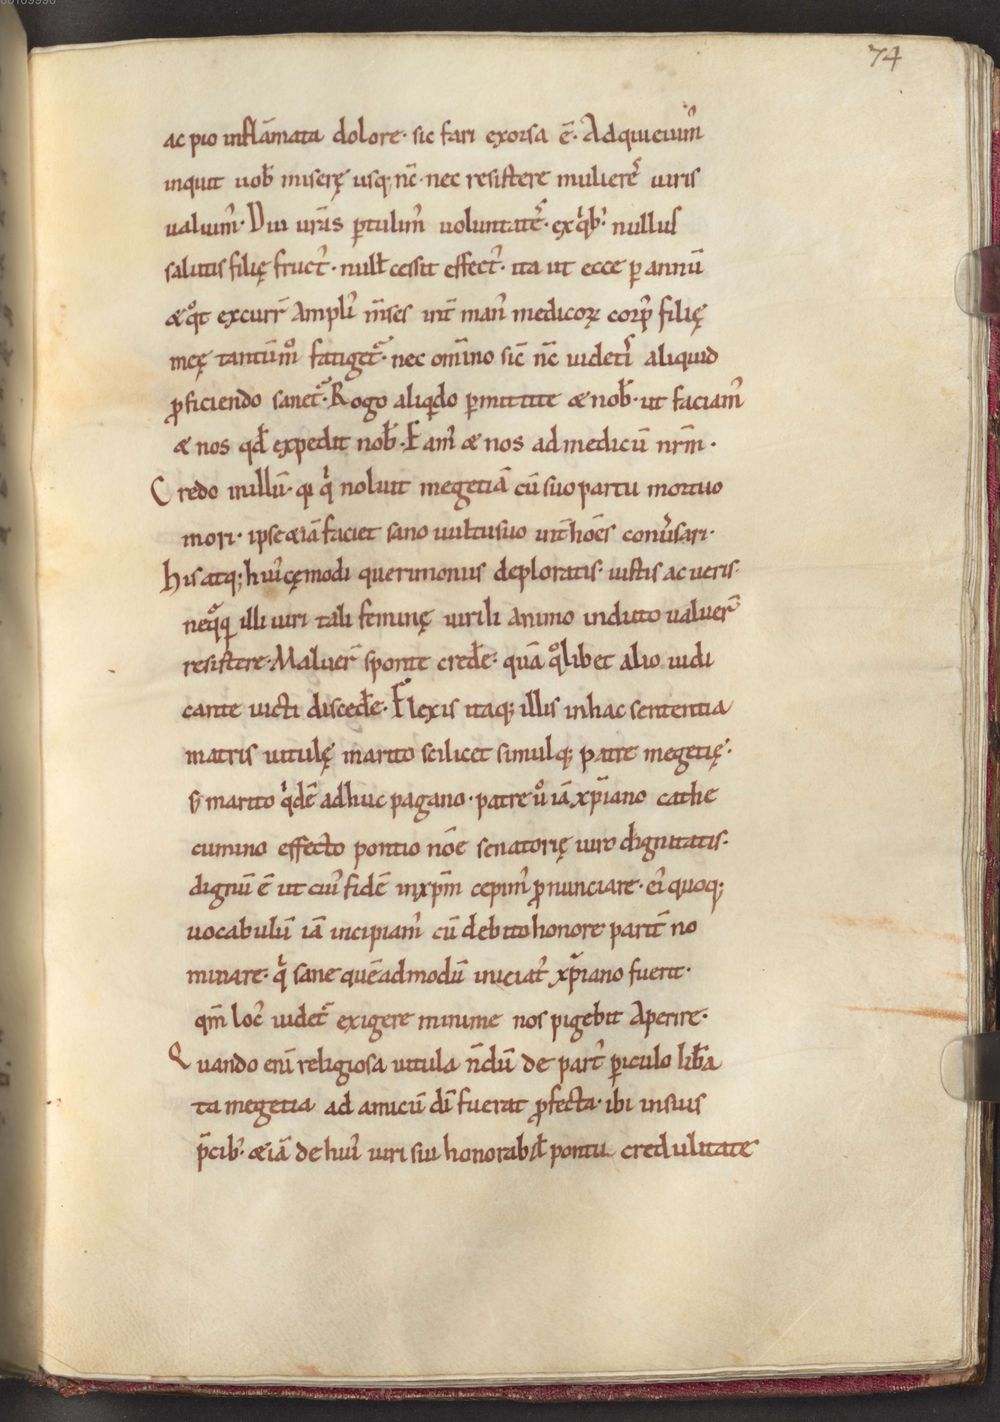 74
ac pio inflāmata dolore· sic fari exorsa ē· Adquieuim᷒
inquit uob̄ miserę usq; nc̄· nec resistere muliereᷤ uiris
ualuim᷒· Diu ur̄as ꝑtulim᷒ uoluntateᷤ· ex qⁱb᷒ nullus
salutis filię fruct᷒· null᷒ cessit effect᷒· ita ut ecce ꝑ annū
& qͦt excurr̄ ampli᷒ m̄ses int̄ man᷒ medicoꝝ corp᷒ filię
meę tantūmͦ fatiget᷒· nec om̄ino sic̄ nc̄ uidet᷒ aliquid
ꝓficiendo sanet᷒· Rogo aliqᷓdo ꝑmittite & nob̄· ut faciam᷒
& nos qd̄ expedit nob̄· Eam᷒ & nos ad medicū nr̄m·
Credo in illū· q̄ qⁱ noluit megetiā cū suo partu mortuo
mori· ipse &iā faciet sano uultu suo int̄ hōes conu᷒sari·
his atq; hui᷒cęmodi querimoniis deploratis· iustis ac ueris·
neqͣqͣ illi uiri tali feminę uirili animo induto ualuer̄
resistere· Maluer̄ sponte cred̄e· quā qͦlibet alio iudi
cante uicti disced̄e· Flexis itaq; illis in hac sententia
matris uitulę marito scilicet simulq; patre megetię·
s; marito qⁱdē adhuc pagano· patre uͦ iā xp̄iano cathe
cumino effecto pontio nōe senatorię uiro dignitatis·
dignū ē ut cui᷒ fidē in xp̄m cepim᷒ ꝓnunciare· ei᷒ quoq;
uocabulū iā incipiam᷒ cū debito honore parit̄ no
minare· qⁱ sane quēadmodū iniciat᷒ xp̄iano fuerit·
qm̄ loc᷒ uidet᷒ exigere minime nos pigebit aperire·
Quando enī religiosa uitula n̄dū de part᷒ ꝑiculo lib̄a
ta megetia ad amicū dī fuerat ꝓfecta· ibi in suis
p̄cib᷒· &iā de hui᷒ uiri sui honorabil̄ pontii credulitate